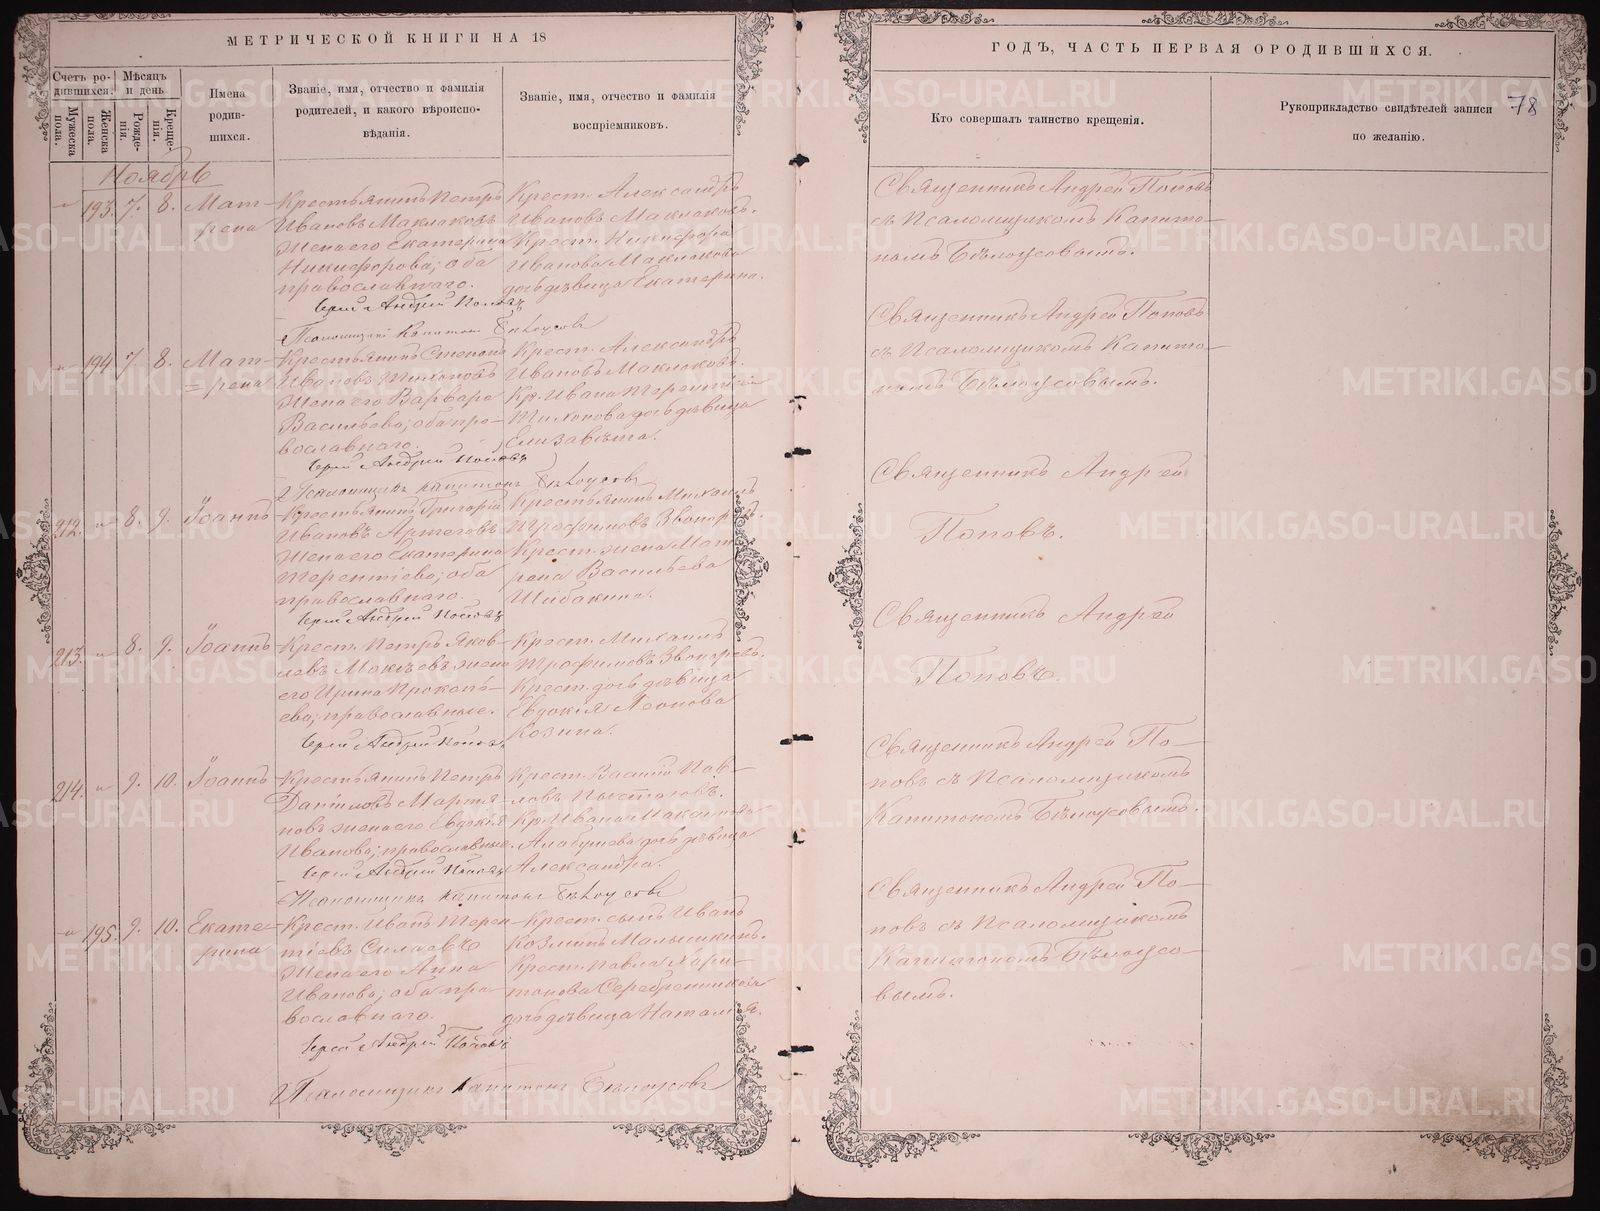 МЕТРИЧЕСКОЙ КНИГИ НА 18
ГОДЪ, ЧАСТЬ ПЕРВАЯ ОРОДИВШИХСЯ.
78
Счетъ ро-
дившихся.
Мужеска
пола.
Женска
пола.
Мѣсяцъ
и день
Рожде-
нія.
Креще-
нія.
Имена
родив-
шихся.
Званіе, имя, отчество и фамилія
родителей, и какого вѣроиспо-
вѣданія.
Званіе, имя, отчество и фамилія
воспріемниковъ.
Кто совершалъ таинство крещенія.
Рукоприкладство свидѣтелей записи
по желанію.
Ноябрь
193. 7. 8. Мат-
рена
Крестьянинъ Петръ
Ивановъ Маклаковъ
жена его Екатерина
Никифорова; оба
православнаго.
Іерей Андрей Поповъ
Псаломщикъ Капитонъ Бѣлоусовъ
Крест. Александръ
Ивановъ Маклаковъ.
Крест. Никифора
Иванова Маклакова
дочь дѣвица Екатерина.
Священникъ Андрей Поповъ
съ Псаломщикомъ Капито-
номъ Бѣлоусовымъ.
194 7. 8. Мат-
рена
Крестьянинъ Степанъ
Ивановъ Тихоновъ
жена его Варвара
Васильева; оба пра-
вославнаго.
Іерей Андрей Поповъ
Псаломщикъ Капитонъ Бѣлоусовъ
Крест. Александръ
Ивановъ Маклаковъ.
Кр. Ивана Терентьева
Тихонова дочь дѣвица
Елизавета.
Священникъ Андрей Поповъ
съ Псаломщикомъ Капито-
номъ Бѣлоусовымъ.
212. 8. 9. Іоаннъ
Крестьянинъ Григорій
Ивановъ
жена его Екатерина
Терентіева; оба
православнаго.
Іерей Андрей Поповъ
Крестьянинъ Михаилъ
Трофимовъ
Крест. жена Мат
рена Васильева
Шибакина.
Священникъ Андрей
Поповъ.
213. 8. 9. Іоаннъ
Крест. Петръ Яков-
левъ жена
его Ирина Прокопь-
ева; православные.
Іерей Андрей Поповъ
Крест. Михаилъ
Трофимовъ
Крест. дочь дѣвица
Евдокія
Козина.
Священникъ Андрей
Поповъ.
214. 9. 10. Іоаннъ
Крестьянинъ Петръ
Даниловъ Мартья-
новъ жена его Евдокія
Иванова; православные.
Іерей Андрей Поповъ
Псаломщикъ Капитонъ Бѣлоусовъ
Крест. Василій Пав-
ловъ
Кр. Ивана
дочь дѣвица
Александра.
Священникъ Андрей По-
повъ съ Псаломщикомъ
Капитономъ Бѣлоусовымъ.
195. 9. 10. Екате-
рина
Крест. Иванъ Терен-
тіевъ Силаевъ
жена его Анна
Иванова; оба пра
вославнаго.
Іерей Андрей Поповъ
Псаломщикъ Капитонъ Бѣлоусовъ
Крест. сынъ Иванъ
Козминъ Малышкинъ.
Крест. Павла Хари-
тонова Серебренникова
дочь дѣвица Наталія.
Священникъ Андрей По-
повъ съ Псаломщикомъ
Капитономъ Бѣлоусо-
вымъ.
METRIKI.GASO-URAL.RU